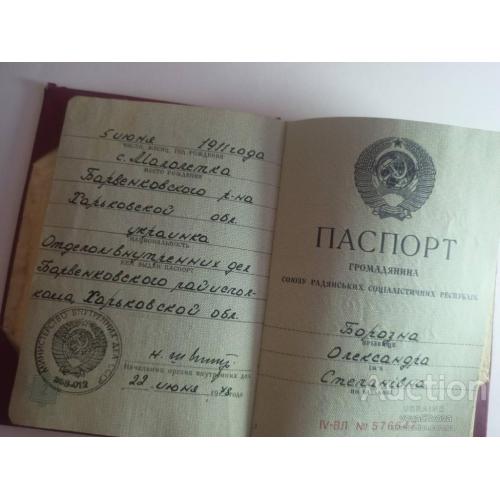 5 июня 1911 года
число, месяц, год рождения
с. Малолетка
место рождения
Барвенковского р-на
Харьковской обл.
украинка
национальность
Отделом внутренних дел
кем выдан паспорт
Барвенковского райиспол-
кома Харьковской обл.
МИНИСТЕРСТВО ВНУТРЕННИХ ДЕЛ СССР
Начальник органа внутренних дел
22 июня 1978 года
ПАСПОРТ
ГРОМАДЯНИНА
СОЮЗУ РАДЯНСЬКИХ СОЦІАЛІСТИЧНИХ РЕСПУБЛІК
Борозна
прізвище
Олександра
ім'я
Степанівна
по батькові
IV-ВЛ № 576647
Auction
UKRAINE